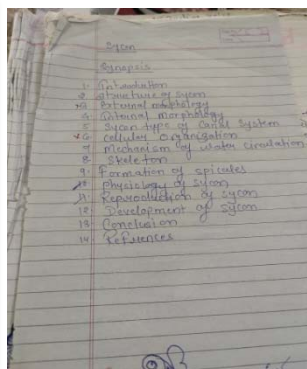 Sycon
Synopsis
1. Introduction
2 Structure of sycon
*3 External morphology
4 Internal morphology
5 Sycon type of Canal System
*6 Cellular Organization
7 Mechanism of water circulation
8 Skeleton
9. Formation of spicules
10 Physiology of sycon
11. Reproduction of sycon
12 Development of sycon
13 Conclusion
14 References